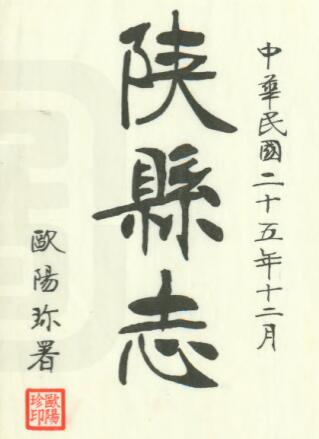 中華民國二十五年十二月
陝縣志
歐陽珍署
歐陽
珍印